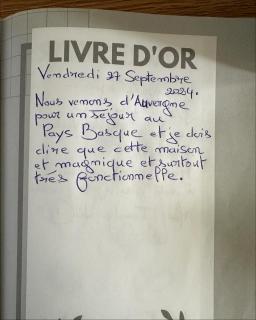 LIVRE D'OR
Vendredi 27 Septembre
2024.
Nous venons d'Auvergne
pour un séjour au
Pays Basque et je dois
dire que cette maison
et magnique et surtout
très fonctionnelle.